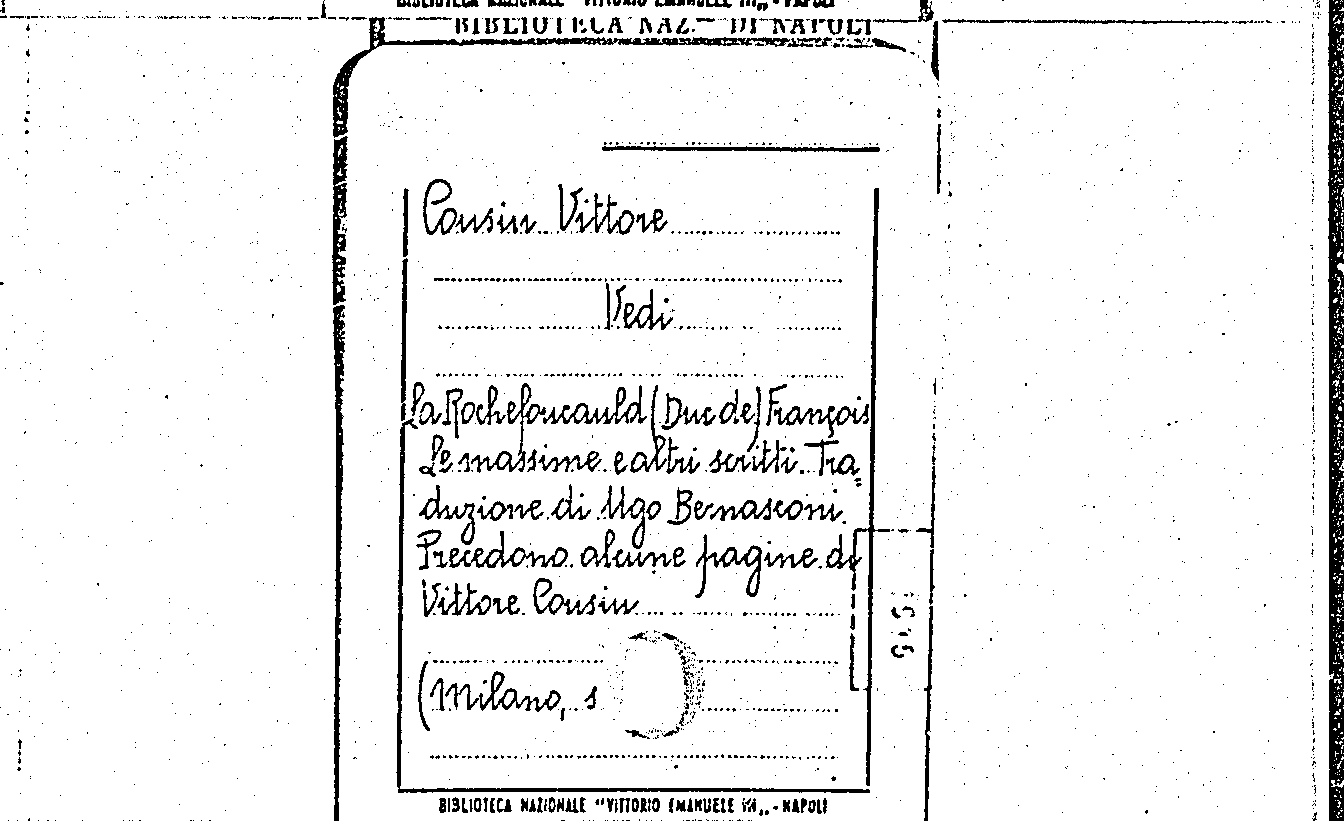 BIBLIOTECA NAZIONALE "VITTORIO EMANUELE III„ - NAPOLI
BIBLIOTECA NAZ. - DI NAPOLI
Cousin Vittore
Vedi
La Rochefoucauld (Duc de) François
Le massime e altri scritti. Tra=
duzione di Ugo Bernasconi.
Precedono alcune pagine di
Vittore Cousin
(Milano, s
BIBLIOTECA NAZIONALE "VITTORIO EMANUELE III„ - NAPOLI